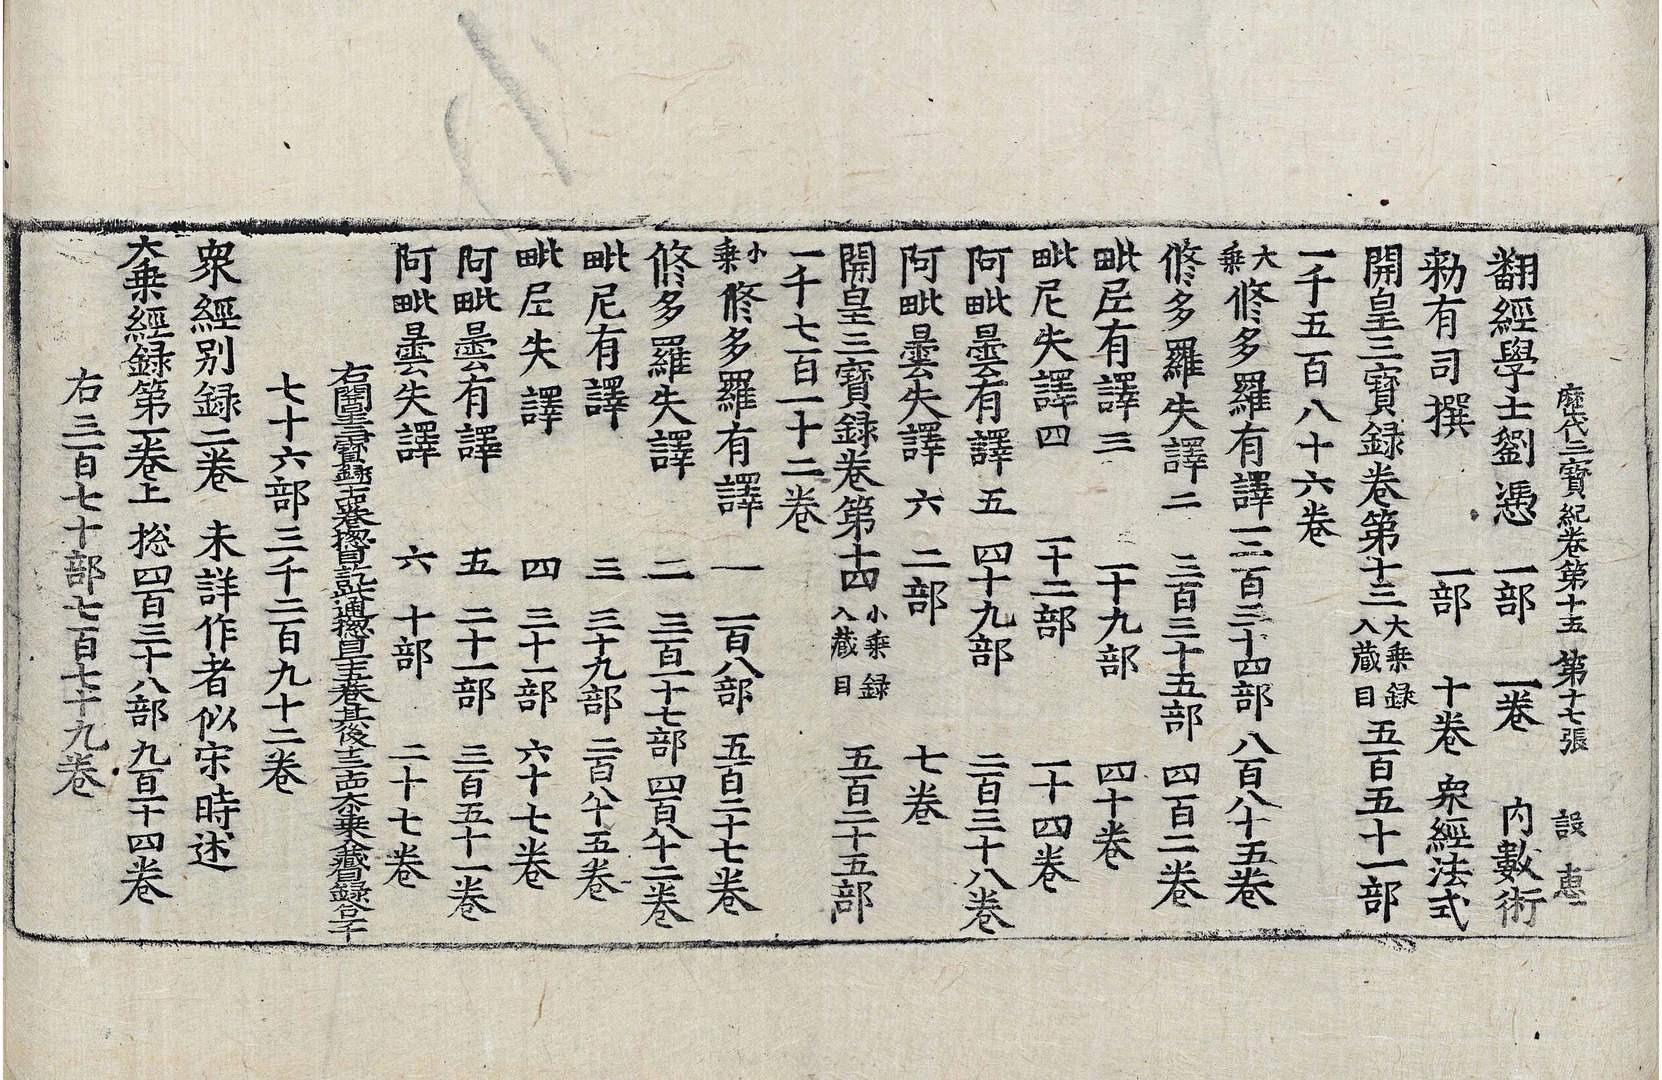 歷代三寶紀卷第十五 第十七張 設 惠
翻經學士劉憑 一部 一卷 內數術
勑有司撰 一部 十卷 衆經法式
開皇三寶録卷第十三 大乗録入藏目 五百五十一部
一千五百八十六卷
大乗 修多羅有譯一 二百三十四部 八百八十五卷
修多羅失譯二 二百三十五部 四百二卷
毗尼有譯三 一十九部 四十卷
毗尼失譯四 一十二部 一十四卷
阿毗曇有譯五 四十九部 二百三十八卷
阿毗曇失譯六 二部 七卷
開皇三寶録卷第十四 小乗録入藏目 五百二十五部
一千七百一十二卷
小乗 修多羅有譯 一 一百八部 五百二十七卷
修多羅失譯 二 三百一十七部 四百八十二卷
毗尼有譯 三 三十九部 二百八十五卷
毗尼失譯 四 三十一部 六十七卷
阿毗曇有譯 五 二十一部 三百五十一卷
阿毗曇失譯 六 十部 二十七卷
右開皇三寶録一十四卷揔目訖此通揔目十五卷其後十三十四兩卷大小乗入藏目録合一千
七十六部三千二百九十二卷
衆經别録二卷 未詳作者似宋時述
大乗經録第一卷上 揔四百三十八部九百一十四卷
右三百七十部七百七十九卷